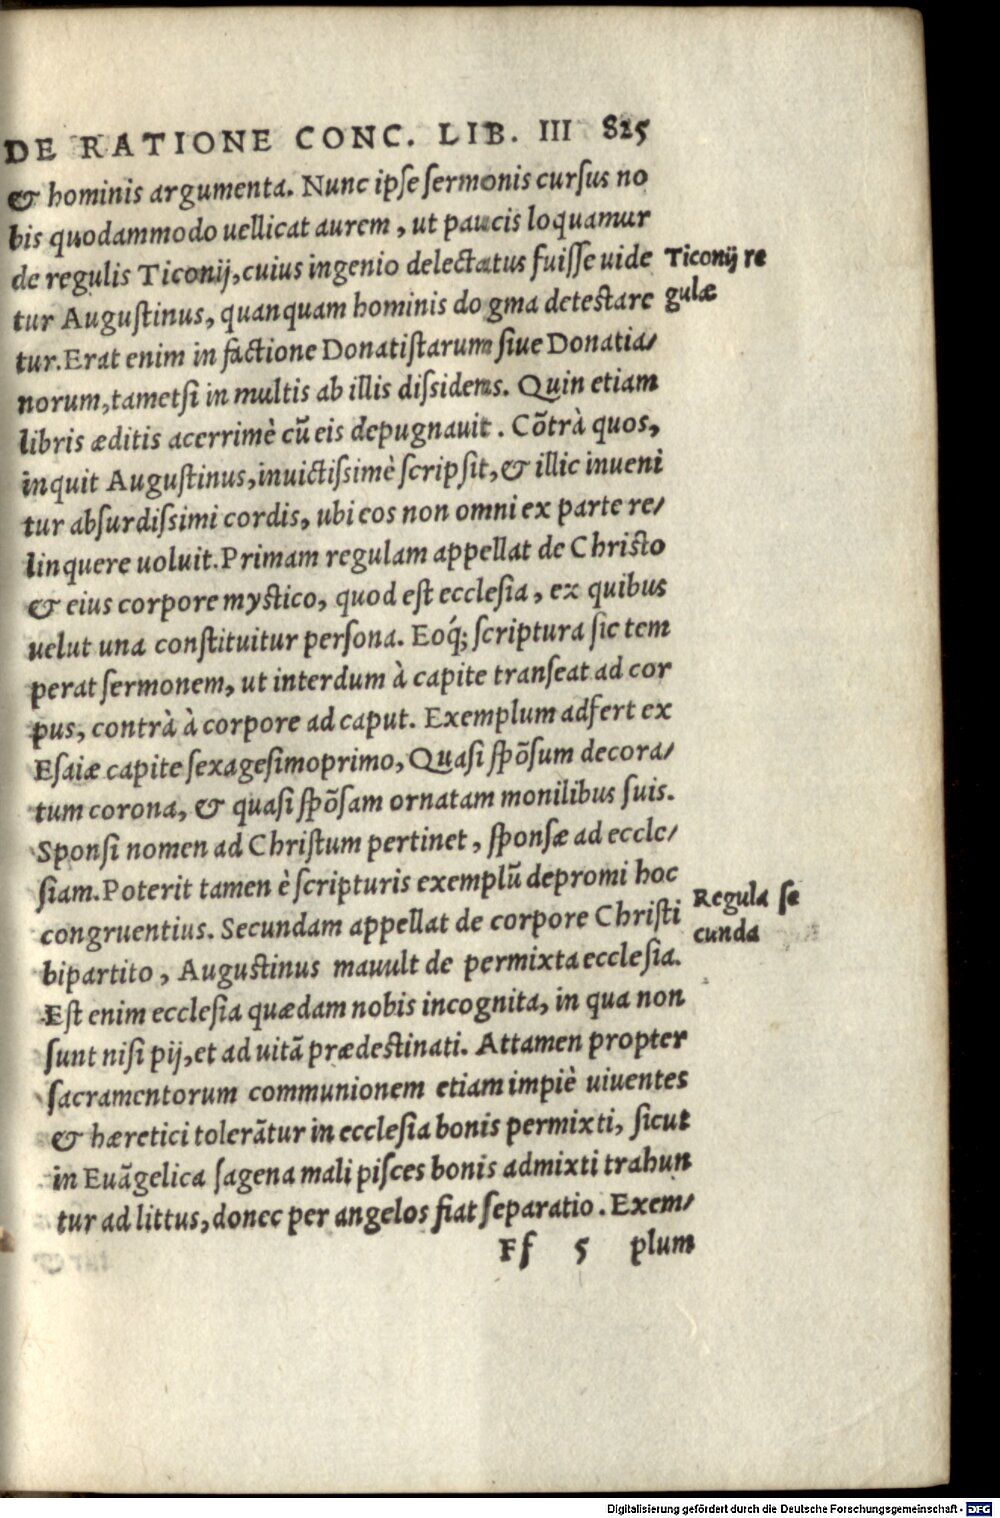 DE RATIONE CONC. LIB. III 825
& hominis argumenta. Nunc ipſe ſermonis curſus no
bis quodammodo uellicat aurem, ut paucis loquamur
de regulis Ticonij, cuius ingenio delectatus fuiſſe uide
Ticonij re
gulæ
tur Auguſtinus, quanquam hominis dogma deteſtare
tur. Erat enim in factione Donatiſtarum ſiue Donatia/
norum, tametſi in multis ab illis diſsidens. Quin etiam
libris æditis acerrimè cũ eis depugnauit. Cõtrà quos,
inquit Auguſtinus, inuictiſsimè ſcripſit, & illic inueni
tur abſurdiſsimi cordis, ubi eos non omni ex parte re/
linquere uoluit. Primam regulam appellat de Chriſto
& eius corpore myſtico, quod eſt eccleſia, ex quibus
uelut una conſtituitur perſona. Eoq́; ſcriptura ſic tem
perat ſermonem, ut interdum à capite tranſeat ad cor
pus, contrà à corpore ad caput. Exemplum adfert ex
Eſaiæ capite ſexageſimoprimo, Quaſi ſpõſum decora/
tum corona, & quaſi ſpõſam ornatam monilibus ſuis.
Sponſi nomen ad Chriſtum pertinet, ſponſæ ad eccle/
ſiam. Poterit tamen è ſcripturis exemplũ depromi hoc
congruentius. Secundam appellat de corpore Chriſti
Regula ſe
cunda
bipartito, Auguſtinus mauult de permixta eccleſia.
Eſt enim eccleſia quædam nobis incognita, in qua non
ſunt niſi pij, et ad uitã prædeſtinati. Attamen propter
ſacramentorum communionem etiam impiè uiuentes
& hæretici tolerãtur in eccleſia bonis permixti, ſicut
in Euãgelica ſagena mali piſces bonis admixti trahun
tur ad littus, donec per angelos fiat ſeparatio. Exem/
Ff 5 plum
Digitalisierung gefördert durch die Deutsche Forschungsgemeinschaft - DFG